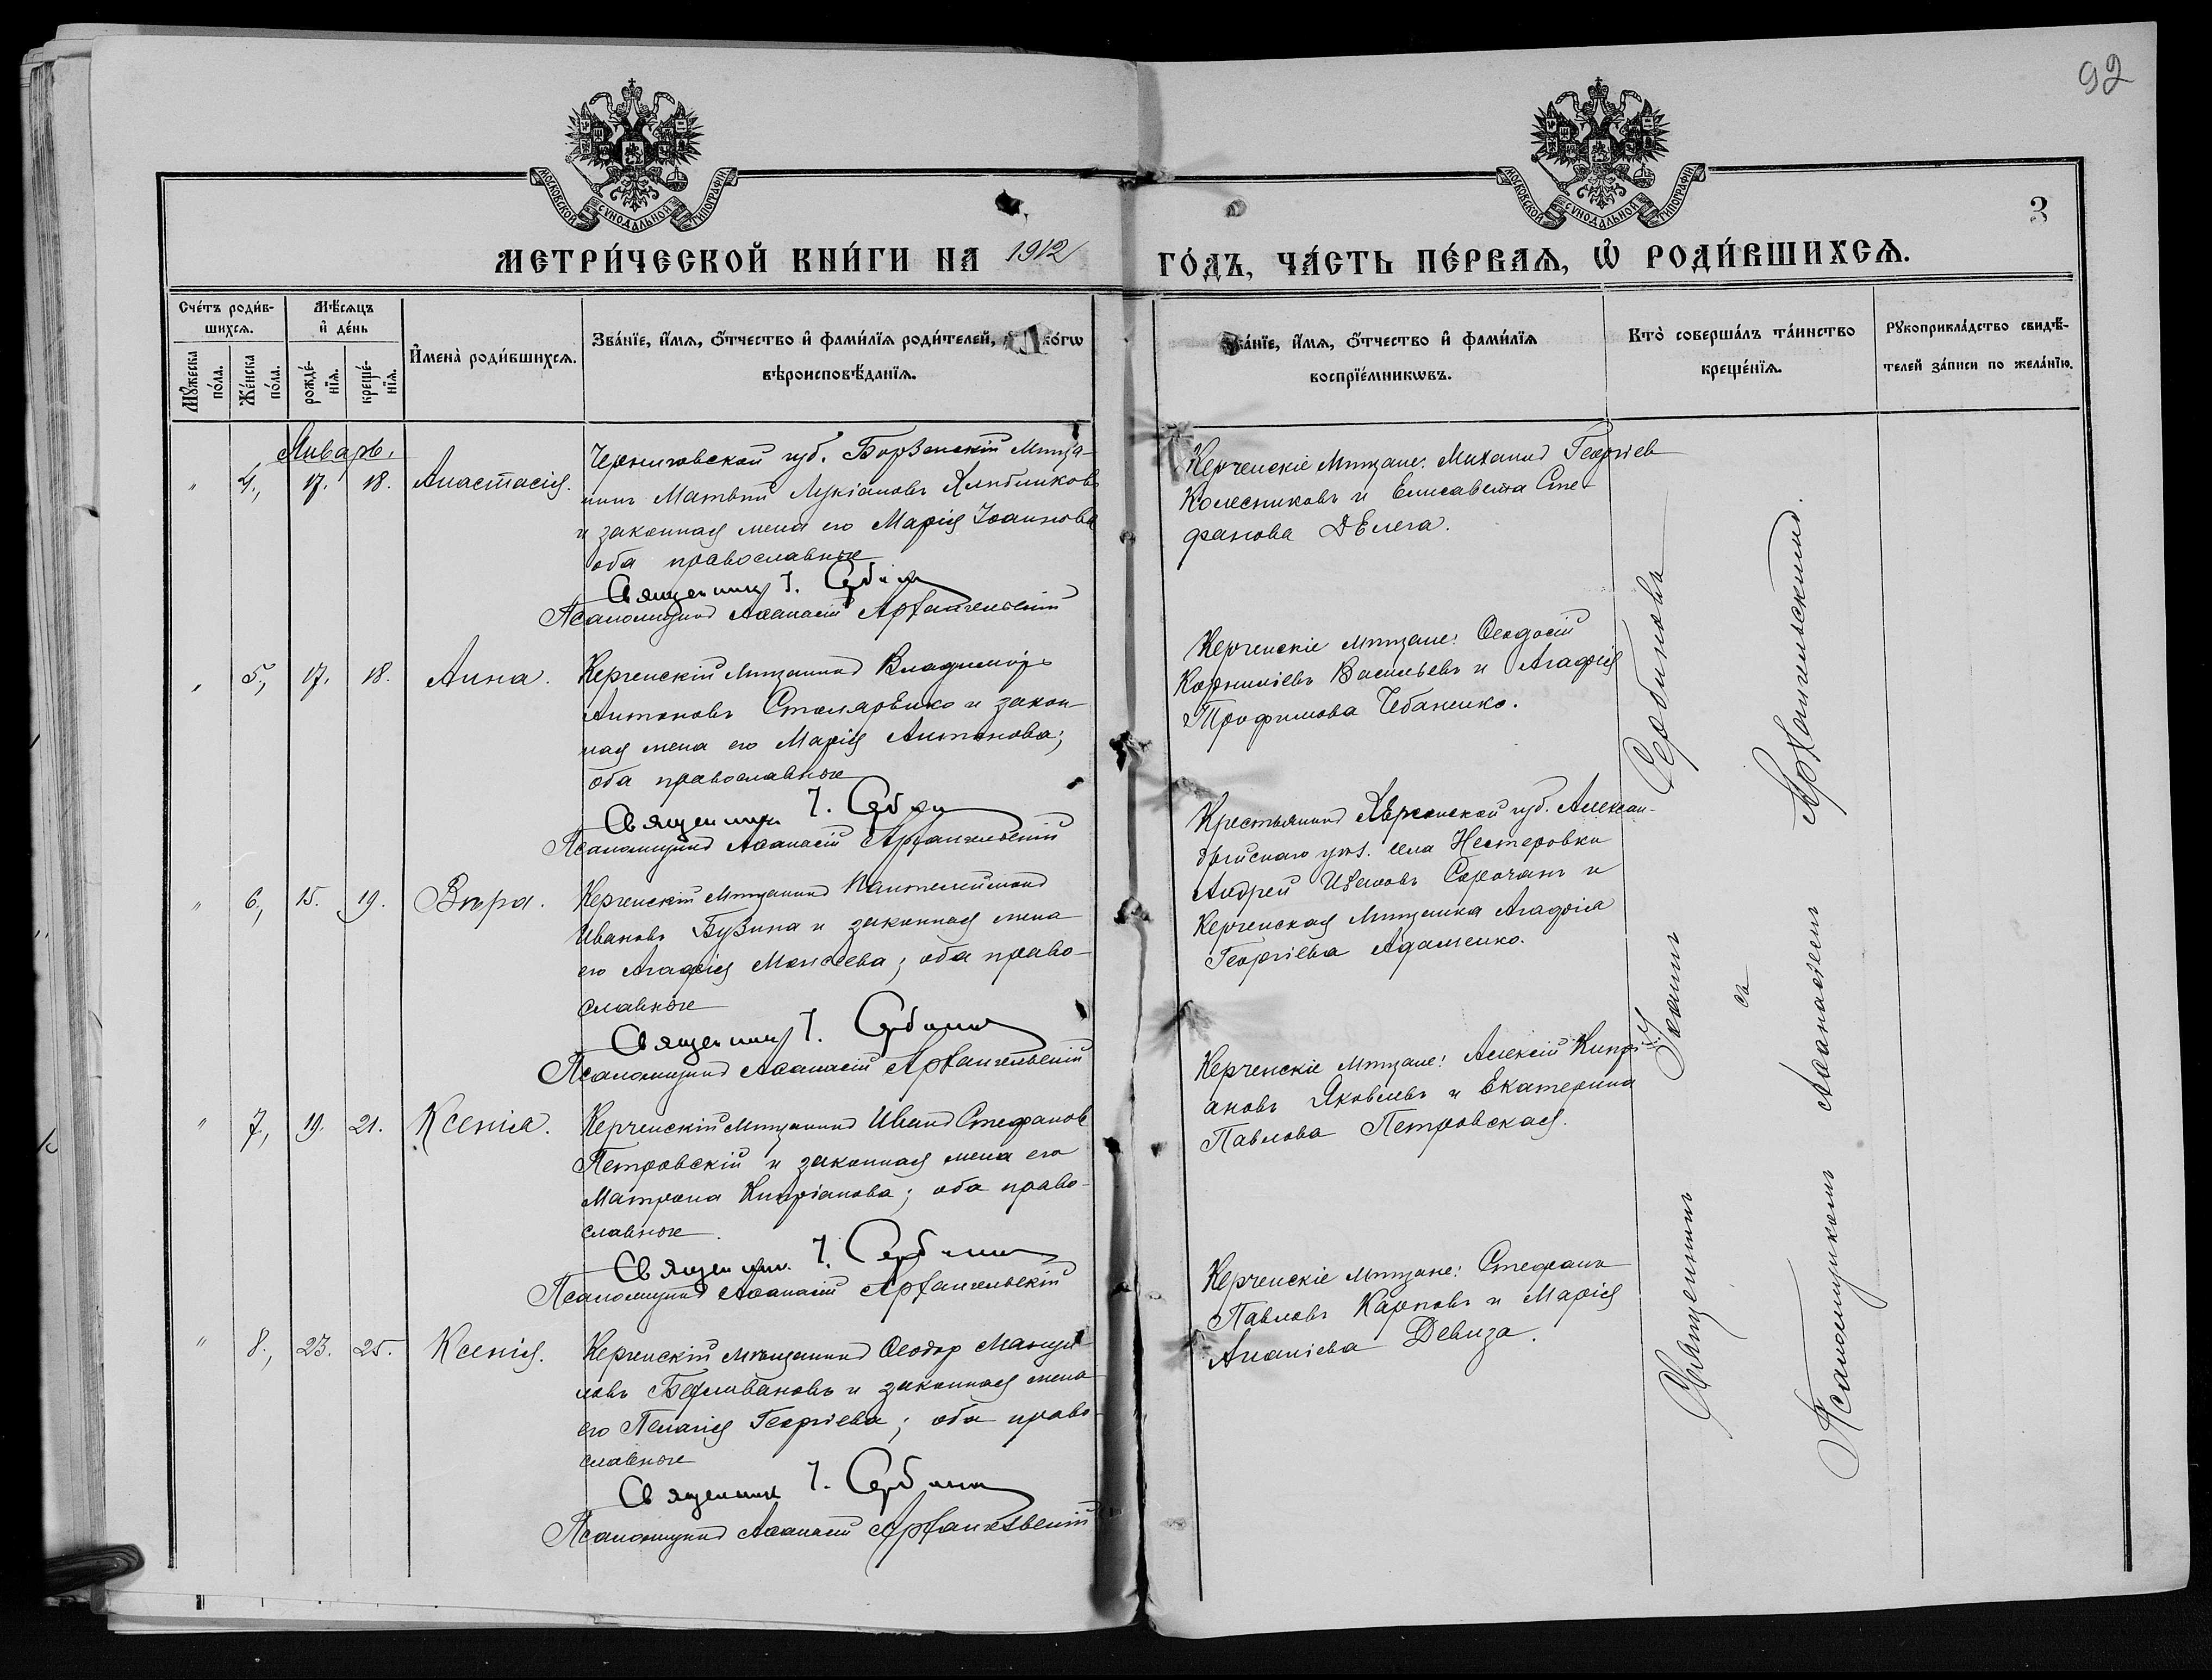 92
3
МОСКОВСКОЙ СѴНОДАЛЬНОЙ ТИПОГРАФІИ
МОСКОВСКОЙ СѴНОДАЛЬНОЙ ТИПОГРАФІИ
МЕТРИ́ЧЕСКОЙ КНИ́ГИ НА 1912 ГО́ДЪ, ЧА́СТЬ ПЕ́РВАѦ, Ѡ҆ РОДИ́ВШИХСѦ.
Сче́тъ роди́в-
шихсѧ.
Мѣ́сѧцъ
и҆ де́нь
Мꙋ́жеска по́ла.
Же́нска по́ла.
рожде́-
нїѧ.
креще́-
нїѧ.
И҆мена̀ роди́вшихсѧ.
Зва́нїе, и҆́мѧ, о҆́тчество и҆ фами́лїѧ роди́телей, и҆ како́гѡ
вѣроисповѣ́данїѧ.
Зва́нїе, и҆́мѧ, о҆́тчество и҆ фами́лїѧ
воспрїе́мникѡвъ.
Кто̀ соверша́лъ та́инство
креще́нїѧ.
Рꙋкоприкла́дство свидѣ́-
телей за́писи по жела́нїю.
Январь.
" 4., 17. 18. Анастасія.
Черниговской губ. Борзенскій Мѣща-
нинъ Матвѣй Лукіановъ Хлѣбниковъ
и законная жена его Марія Іоаннова
оба православные
Священникъ І. Сербинов
Псаломщикъ Аѳанасій Архангельскій
Керченскіе Мѣщане: Михаилъ Георгіев
Колесниковъ и Елисавета Сте-
фанова ДЕлега.
" 5., 17. 18. Анна.
Керченскій Мѣщанинъ Владиміръ
Антоновъ СтолярЕнко и закон-
ная жена его Марія Антонова;
оба православные
Священникъ І. Сербинов
Псаломщикъ Аѳанасій Архангельскій
Керченскіе мѣщане: Ѳеодосій
Корниліевъ Васильевъ и Агафія
Трофимова Чебаненко.
" 6., 15. 19. Вѣра.
Керченскій Мѣщанинъ Пантелеймонъ
Ивановъ Бузина и законная жена
его Агафія Моисеева; оба право-
славные
Священникъ І. Сербинов
Псаломщикъ Аѳанасій Архангельскій
Крестьянинъ ХЕрсонской губ. Алексан-
дрійскаго уѣз. села Нестеровки
Андрей Ивановъ Сорочанъ и
Керченская Мѣщанка Агафіа
Георгіева Адаменко.
" 7., 19. 21. Ксеніа.
Керченскій Мѣщанинъ Иванъ Стефанов
Петровскій и законная жена его
Матрона Кипріанова; оба право-
славные.
Священник. І. Сербинов
Псаломщикъ Аѳанасій Архангельскій
Керченскіе Мѣщане: Алексій Кипрі-
ановъ Яковлевъ и Екатерина
Павлова Петровская.
" 8., 23. 25. Ксенія.
Керченскій Мѣщанинъ Ѳеодор Мануи-
ловъ и законная жена
его Пелагія Георгіева; оба право-
славные
Священникъ І. Сербинов
Псаломщикъ Аѳанасій Архангельскій
Керченскіе Мѣщане: Стефанъ
Павловъ Карповъ и Марія
Ананіева Девиза.
Священникъ Іоаннъ Сербиновъ
съ
Псаломщикомъ Аѳанасіемъ Архангельскимъ.